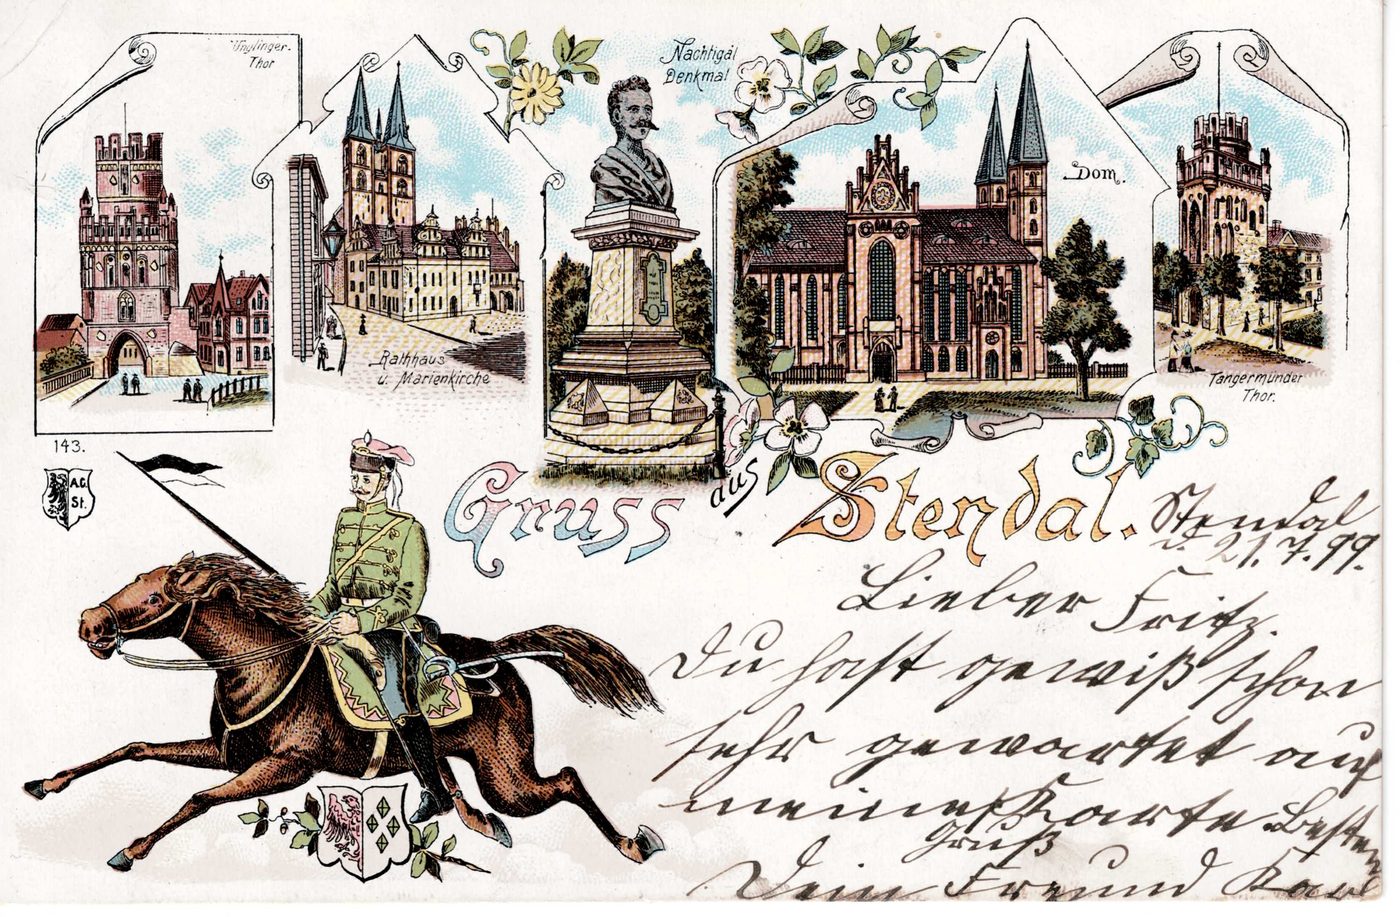 Ünglinger-
Thor
Rathhaus
u. Marienkirche
Nachtigal
Denkmal
Dom.
Tangermünder
Thor.
143.
A.C.
St.
Gruss aus Stendal.
Stendal
d. 21.7.99.
Lieber Fritz.
Du hast gewiß schon
sehr gewartet auf
meine Karte. Besten
Gruß
Dein Freund Karl